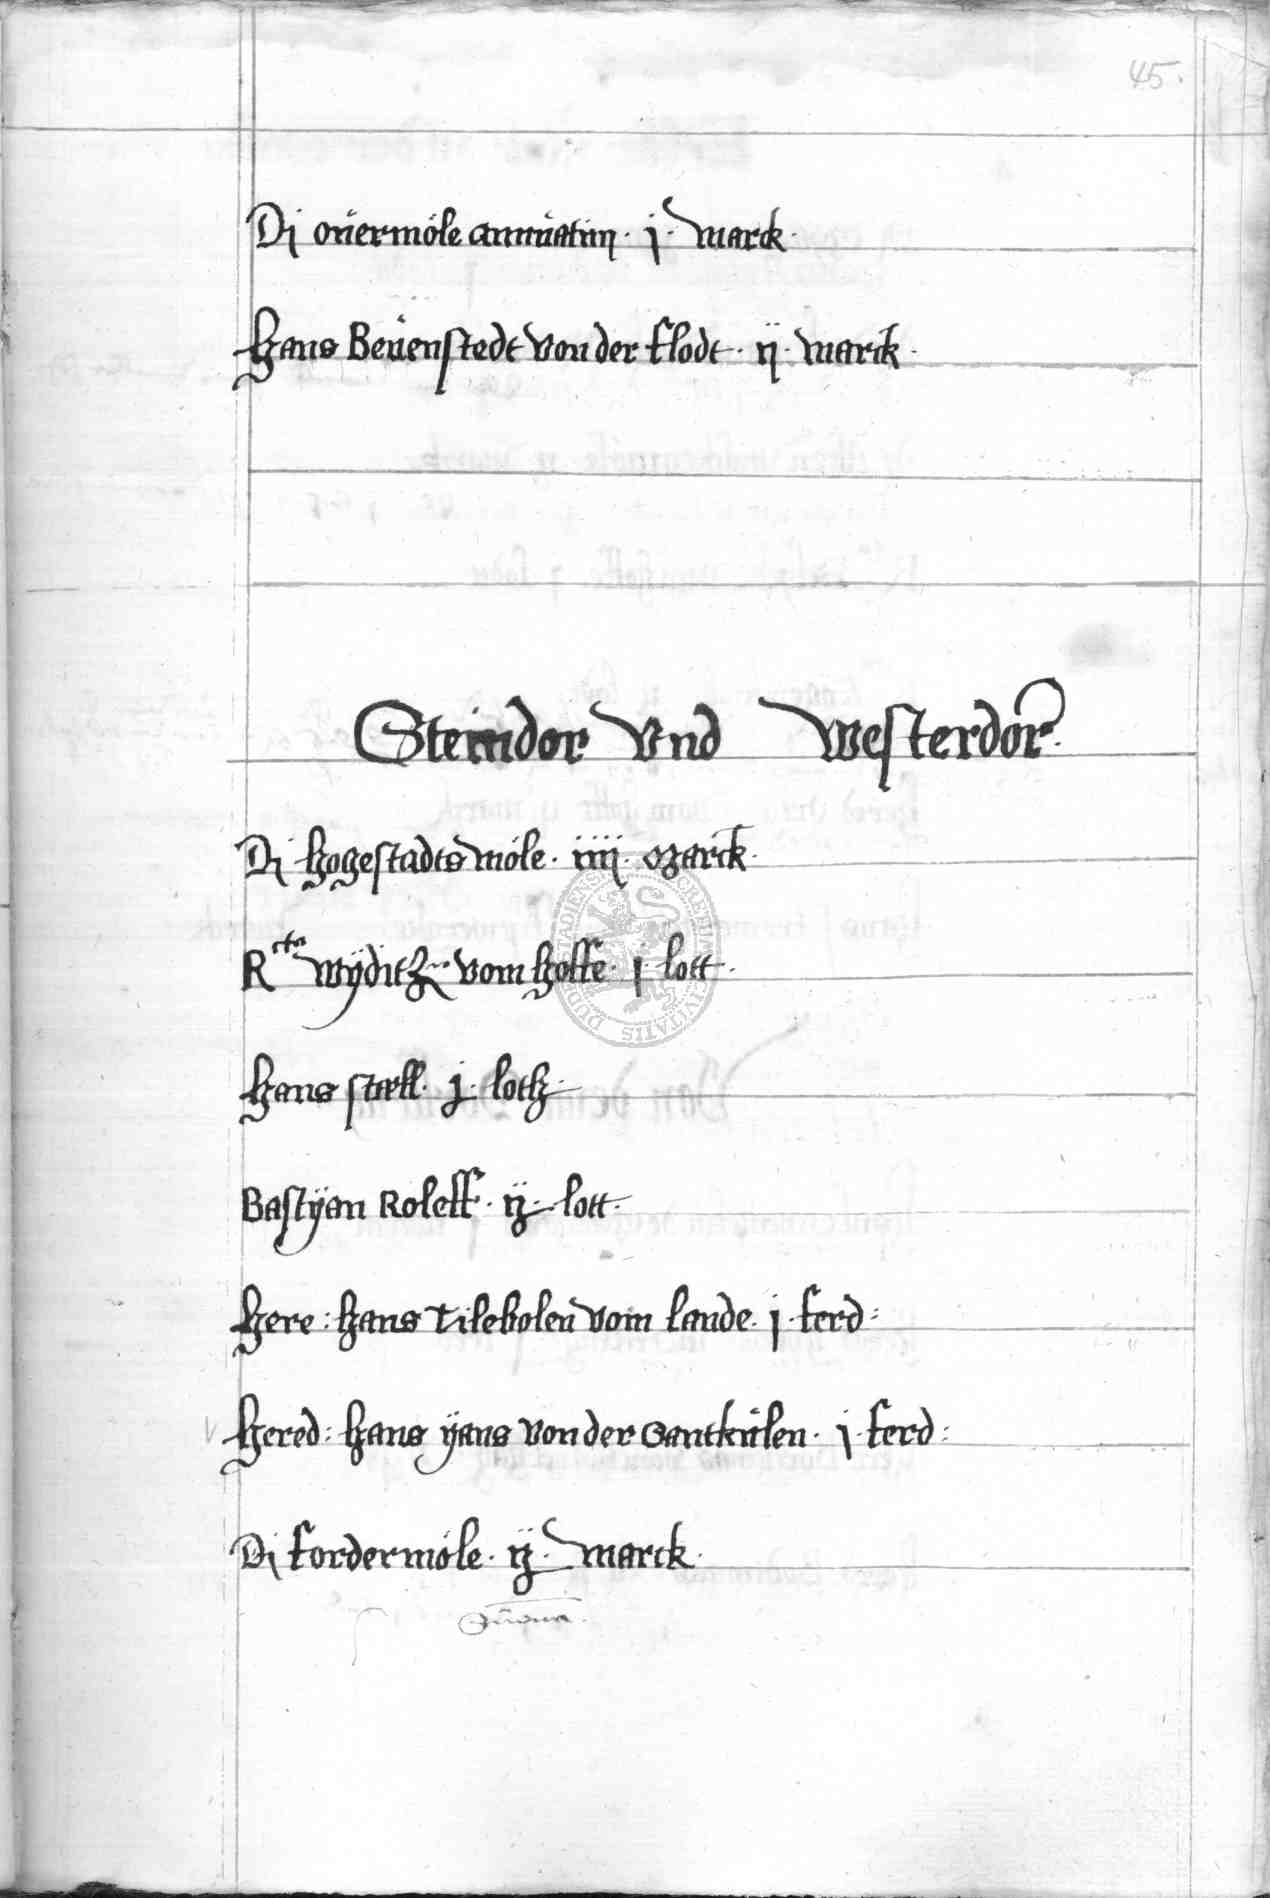 45.
Dj overmöle annuatim · j · marck ·
Hans Bevenstedt von der flodt · ij · marck ·
Steindor und Westerdor
Dj hogestadts möle · iiij · marck ·
R vom hoffe · j · lott ·
Hans · j · loth
Bastÿan Roleff · ij · lott ·
Here : Hans Tilebolen vom lande · j · ferd :
Hered : Hans ÿans von der Santkulen · j · ferd :
Dj fordermöle · ij · marck ·
Summa